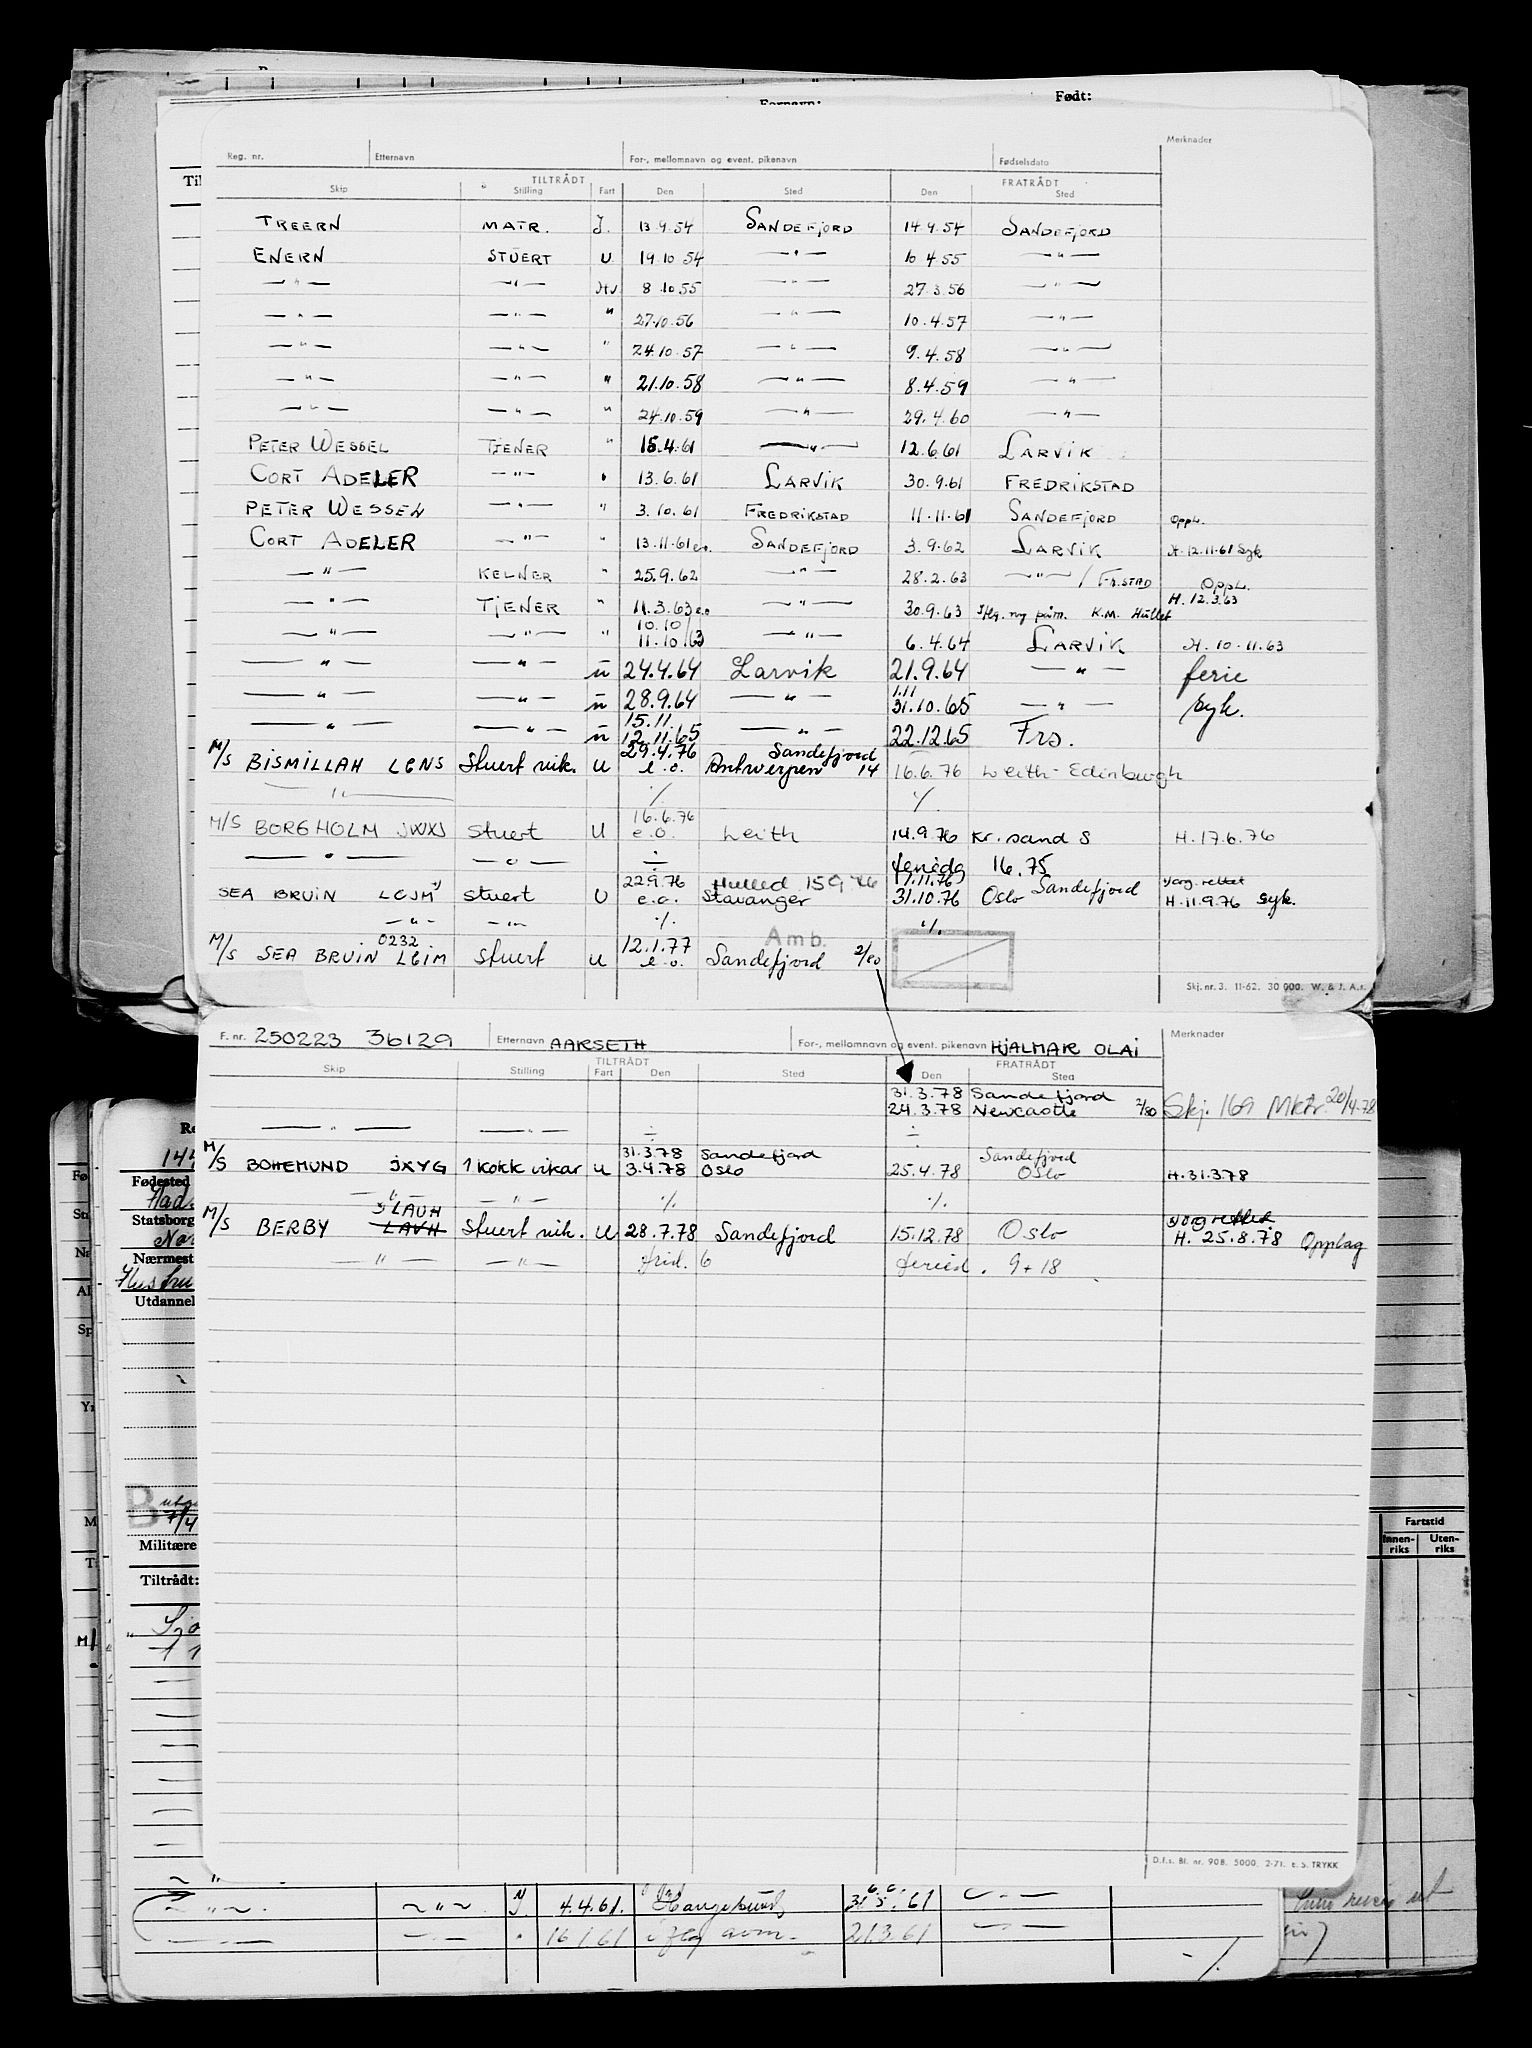 Fornavn: Født:
Reg. nr. Etternavn For-, mellomnavn og event. pikenavn Fødselsdato Merknader
TILTRÅDT FRATRÅDT
Skip Stilling Fart Den Sted Den Sted
TREERN MATR. J. 13.9.54 SANDEFJORD 14.9.54 SANDEFJORD
ENERN STUERT U 19.10 54 —"— 10 4 55 —"—
—"— —"— Hv 8.10.55 —"— 27.3.56 —"—
—"— —"— " 27.10.56 —"— 10.4.57 —"—
—"— —"— " 24.10.57 —"— 9.4.58 —"—
—"— —"— " 21.10.58 —"— 8.4.59 —"—
—"— —"— " 24.10.59 —"— 29.4.60 —"—
PETER WESSEL TJENER " 15.4.61 —"— 12.6.61 LARVIK
CORT ADELER —"— " 13.6.61 LARVIK 30.9.61 FREDRIKSTAD
PETER WESSEL —"— " 3.10.61 FREDRIKSTAD 11.11.61 SANDEFJORD Oppl.
CORT ADELER —"— " 13.11.61 e.o. SANDEFJORD 3.9.62 LARVIK H.12.11.61 Syk
—"— KELNER " 25.9.62 —"— 28.2.63 —"— / FR.STAD Oppl.
—"— TJENER " 11.3.63 e.o —"— 30.9.63 Iflg. ny påm. K.M. Hullet H. 12.3.63
10.10/
—"— —"— " 11.10.63 —"— 6.4.64 LARVIK H. 10.11.63
—"— —"— u 24.4.64 Larvik 21.9.64 —"— ferie
1.11
—"— —"— u 28.9.64 —"— 31.10.65 —"— syk.
15.11.
—"— —"— u 12.11.65 —"— 22.12.65 Frs.
29.4.76 Sandefjord
M/S BISMILLAH LGNS Stuert vik. U e.o. Antwerpen 14 16.6.76 Leith-Edinburgh
—"— ·/. ·/.
16.6.76
M/S BORGHOLM JWXJ Stuert U e.o. Leith 14.9.76 Kr.sand S H.17.6.76
—"— —"— ÷ feriedg 16.75
22.9.76 Hulled 15 9 76 17.11.76 Sandefjord
SEA BRUIN LCJM Stuert U e.o. Stavanger 31.10.76 Oslo H.11.9.76 syk.
—"— —"— ·/. ·/.
Amb.
0232 12.1.77
M/S SEA BRUIN LCIM Stuert U e.o. Sandefjord 2/80
Skj. nr. 3. 11-62. 30 000. W. & J. A.s.
F. nr. 250223 36129 Etternavn AARSETH For-, mellomnavn og event. pikenavn HJALMAR OLAI Merknader
TILTRÅDT FRATRÅDT
Skip Stilling Fart Den Sted Den Sted
31.3.78 Sandefjord
24.3.78 Newcastle 2/80 Skj. 169 Mktr. 20/4-78
—"— —"— ÷ ÷
31.3.78 Sandefjord Sandefjord
M/S BOHEMUND JXYG 1 kokk vikar U 3.4.78 Oslo 25.4.78 Oslo H.31.3.78
—"— —"— ·/. ·/.
JLAUH
M/S BERBY LAVH Stuert vik. U 28.7.78 Sandefjord 15.12.78 Oslo H. 25.8.78 Opplag
—"— —"— frid. 6 feried. 9+18
D.f.s. Bl. nr. 90B. 5000. 2-71. E.S. TRYKK
Fødested
Statsborg
Nærmest
Utdannel
B
Militære
Tiltrådt:
Fartstid
Innen-riks Uten-riks
—"— —"— 4.4.61. Haugesund 31.5.61 —"—
—"— —"— 16 1 61 21.3.61 —"—